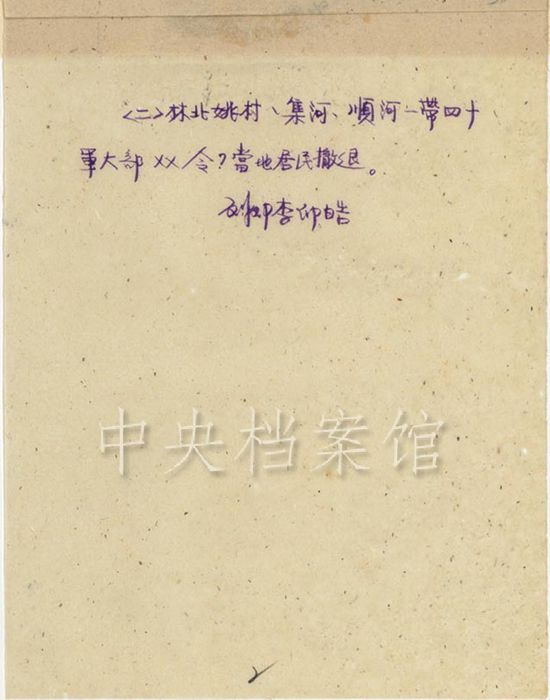 〈二〉林北姚村、集河、順河一帶四十
軍大部××令?當地居民撤退。
李仰皓
中央档案馆
2